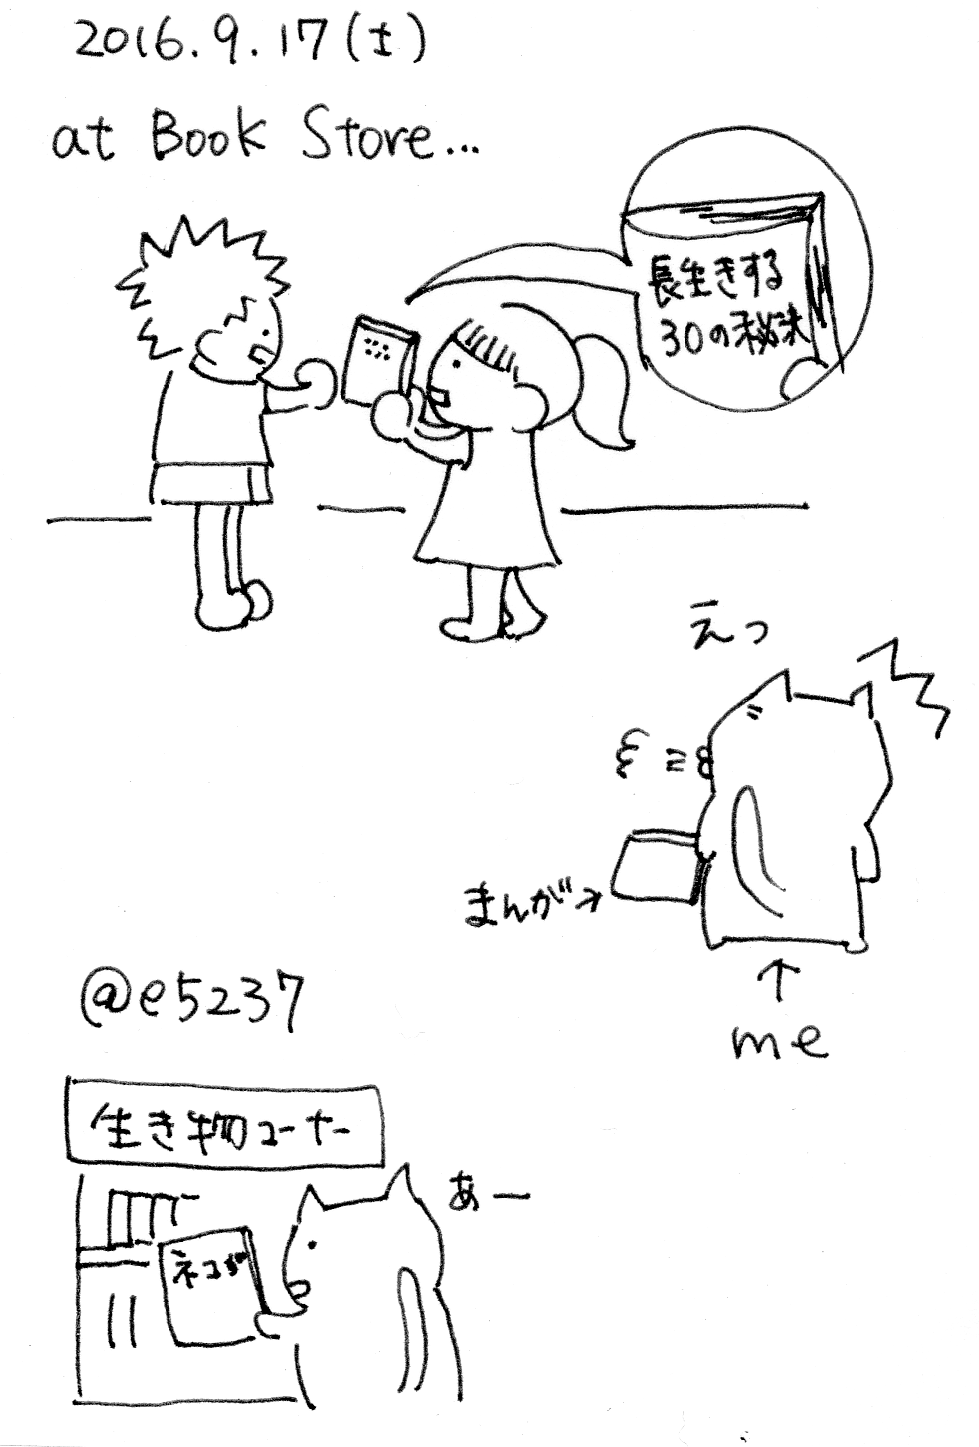 2016.9.17(土)
at Book Store...
長生きする
30の秘訣
えっ
まんが→
↑
me
@e5237
生き物コーナー
あー
ネコが